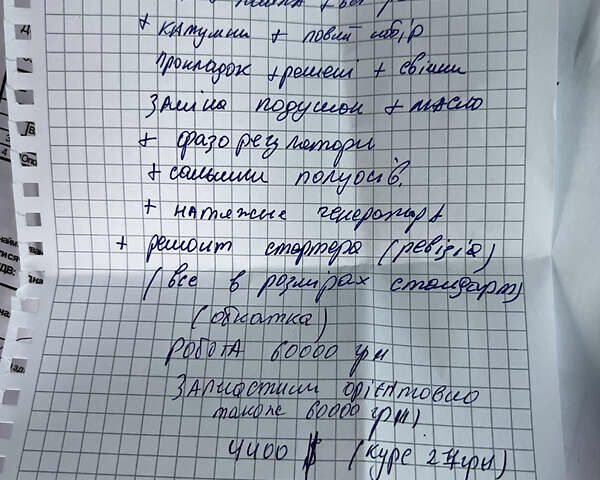 + катушки + повий набір
прокладок + ремені + свічки
заміна подушок + масло
+ фазорегулятори
+ сальники полуосів.
+ натяжные генератора
+ ремонт стартера (ревізія)
(все в розмірах стандарт)
(обкатка)
робота 60000 грн
запчастини орієнтовно
также 60000 грн)
4400 $ (курс 27грн)